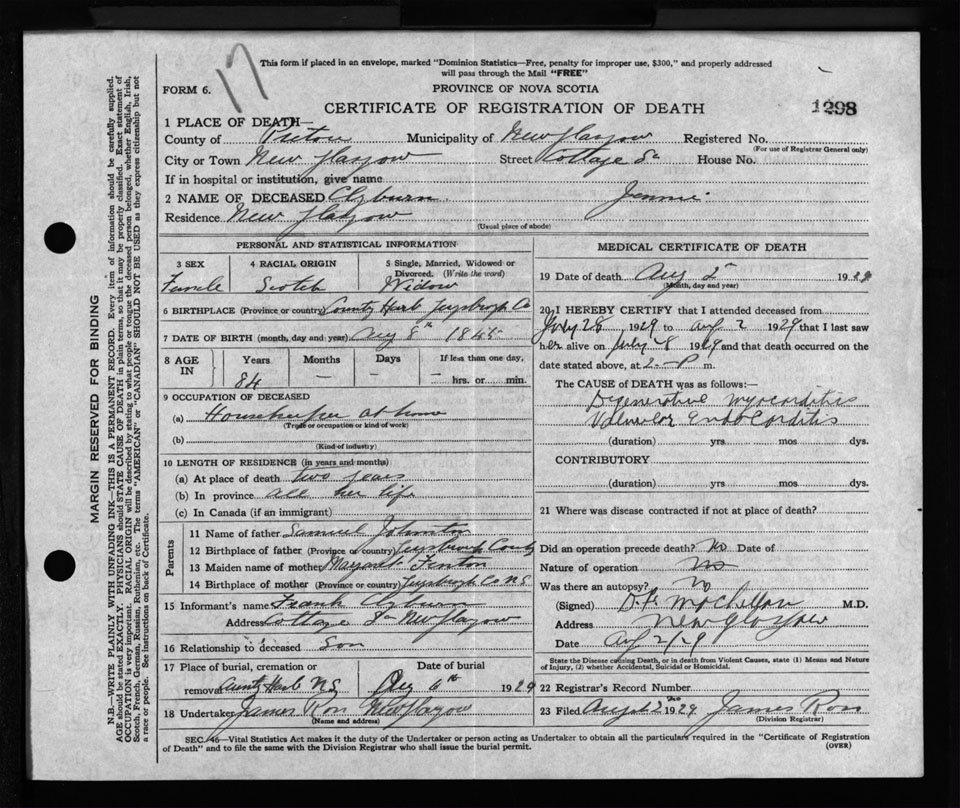 17
This form if placed in an envelope, marked "Dominion Statistics—Free, penalty for improper use, $300," and properly addressed
will pass through the Mail "FREE"
FORM 6.
PROVINCE OF NOVA SCOTIA
CERTIFICATE OF REGISTRATION OF DEATH
1298
1 PLACE OF DEATH—
County of Pictou Municipality of New Glasgow Registered No.
(For use of Registrar General only)
City or Town New Glasgow Street Cottage St House No.
If in hospital or institution, give name
2 NAME OF DECEASED Clyburn Jennie
Residence New Glasgow
(Usual place of abode)
PERSONAL AND STATISTICAL INFORMATION
3 SEX
Female
4 RACIAL ORIGIN
Scotch
5 Single, Married, Widowed or
Divorced. (Write the word)
Widow
6 BIRTHPLACE (Province or country) County Harb Guysboro Co
7 DATE OF BIRTH (month, day and year) Aug 8th 1845
8 AGE IN
Years Months Days If less than one day,
84 — — — hrs. or min.
9 OCCUPATION OF DECEASED
(a) Housekeeper at home
(Trade or occupation or kind of work)
(b)
(Kind of industry)
10 LENGTH OF RESIDENCE (in years and months)
(a) At place of death two years
(b) In province all her life
(c) In Canada (if an immigrant)
Parents
11 Name of father Samuel Johnston
12 Birthplace of father (Province or country) County
13 Maiden name of mother Margaret Fenton
14 Birthplace of mother (Province or country) Co NS
15 Informant's name Frank Clyburn
Address Cottage St New Glasgow
16 Relationship to deceased Son
17 Place of burial, cremation or
removal Harb N.S.
Date of burial
6th 1929
18 Undertaker James Ross New Glasgow
(Name and address)
MEDICAL CERTIFICATE OF DEATH
19 Date of death Aug 1929
(Month, day and year)
20 I HEREBY CERTIFY that I attended deceased from
July 28 1929 to Aug 2 1929 that I last saw
her alive on July 1929 and that death occurred on the
date stated above, at 2 P m.
The CAUSE OF DEATH was as follows:—
Degenerative myocarditis
Valvular Endocarditis
(duration) yrs mos dys.
CONTRIBUTORY
(duration) yrs mos dys.
21 Where was disease contracted if not at place of death?
Did an operation precede death? No Date of
Nature of operation No
Was there an autopsy? No
(Signed) M.D.
Address New Glasgow
Date Aug 2/29
State the Disease causing Death, or in death from Violent Causes, state (1) Means and Nature
of Injury, (2) whether Accidental, Suicidal or Homicidal.
22 Registrar's Record Number
23 Filed August 2nd 1929 James Ross
(Division Registrar)
SEC. 46—Vital Statistics Act makes it the duty of the Undertaker or person acting as Undertaker to obtain all the particulars required in the "Certificate of Registration
of Death" and to file the same with the Division Registrar who shall issue the burial permit.
(OVER)
MARGIN RESERVED FOR BINDING
N.B.—WRITE PLAINLY WITH UNFADING INK—THIS IS A PERMANENT RECORD. Every item of information should be carefully supplied.
AGE should be stated EXACTLY. PHYSICIANS should STATE CAUSE OF DEATH in plain terms, so that it may be properly classified. Exact statement of
OCCUPATION is very important. RACIAL ORIGIN will be described by stating to what people or tongue the deceased person belonged, whether English, Irish,
Scotch, French, German, Russian, Ruthenian, etc. The terms "AMERICAN" or "CANADIAN" SHOULD NOT BE USED as they express citizenship but not
a race or people. See instructions on back of Certificate.